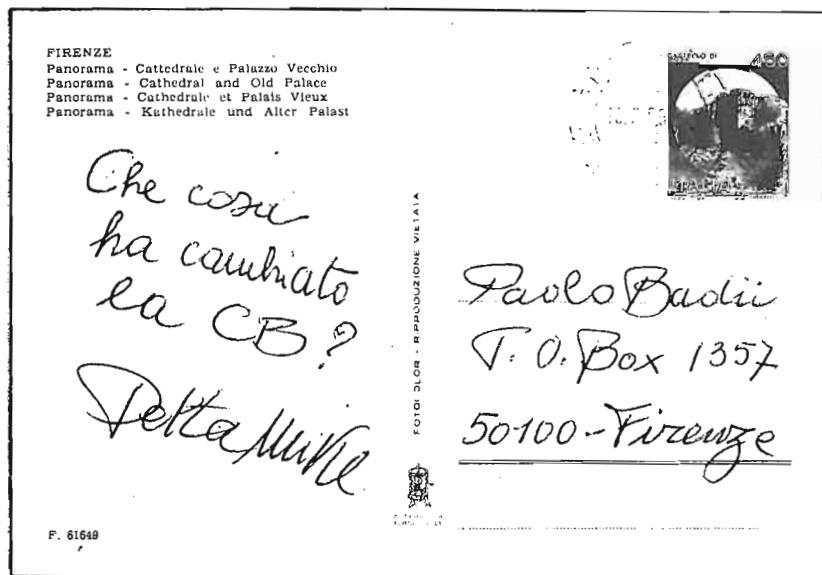 FIRENZE
Panorama - Cattedrale e Palazzo Vecchio
Panorama - Cathedral and Old Palace
Panorama - Cathédrale et Palais Vieux
Panorama - Kathedrale und Alter Palast
Che cosa
ha cambiato
la CB?
Delta Mike
F. 61649
RIPRODUZIONE VIETATA
450
Paolo Badii
P. O. Box 1357
50100 - Firenze